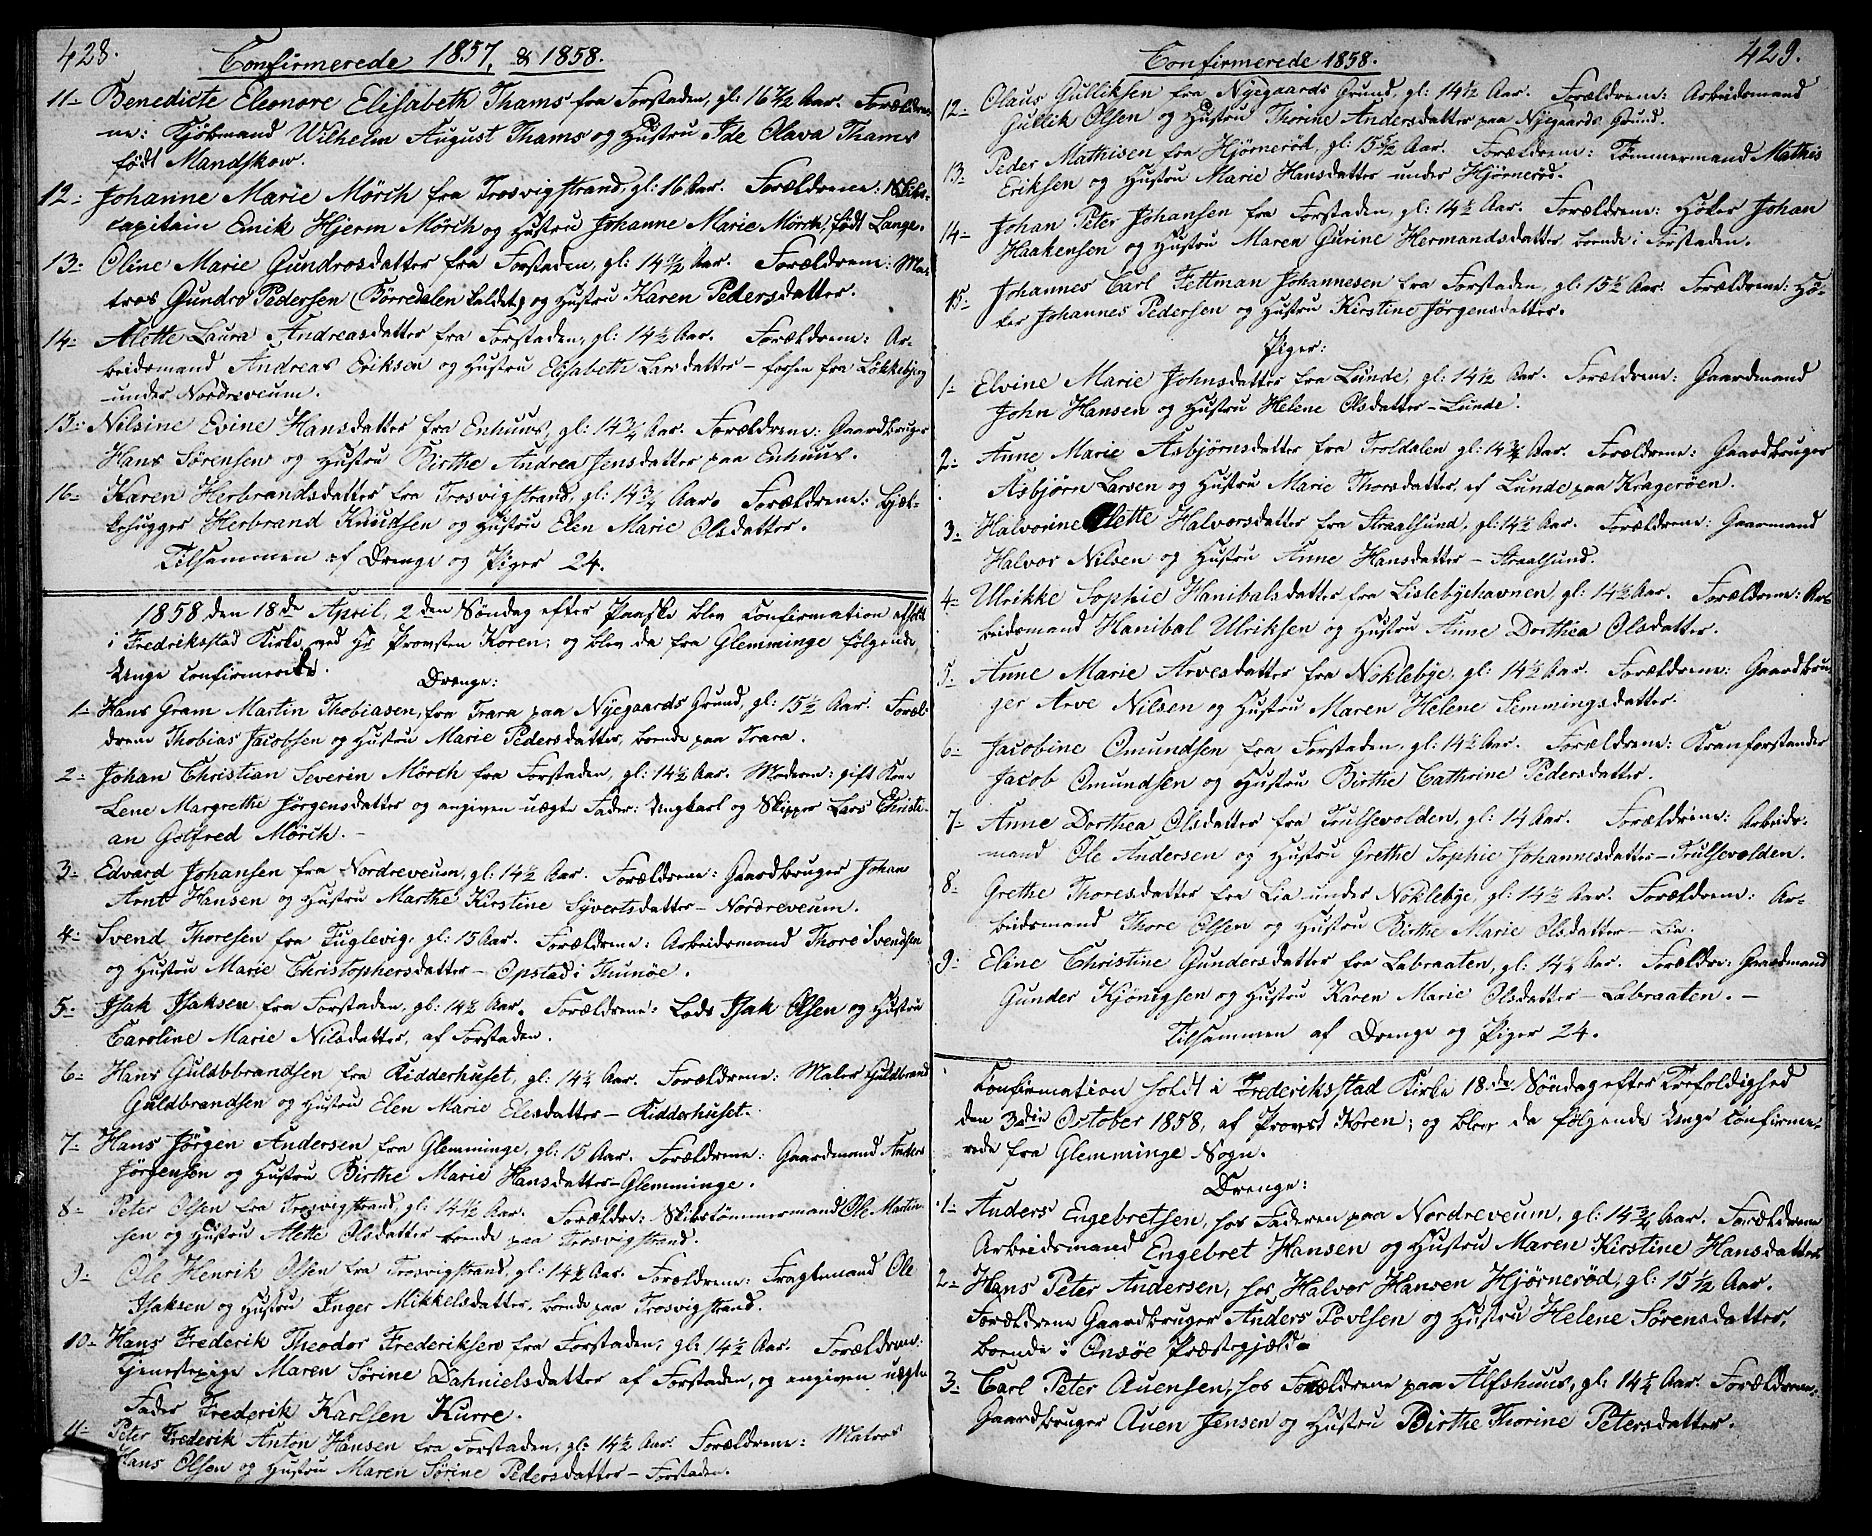 428.
Confirmerede 1857, & 1858.
11- Benedicte Eleonore Elisabeth Thams fra Forstaden, gl: 16 7/12 Aar. Forældre-
ne: Kjöbmand Wilhelm August Thams og Hustru Ide Olava Thams
födt Mandskow.
12- Johanne Marie Mörch fra Trosvigstrand, gl: 16 Aar. Forældrene: Skibs-
capitain Enik Hjerm Mörch og Hustru Johanne Marie Mörch, födt Lange.
13- Oline Marie Gundrosdatter fra Forstaden, gl: 14 Aar. Forældrene: Ma-
tros Gundro Pedersen (Börredalen kaldet) og Hustru Karen Pedersdatter.
14- Alette Laura Andreasdatter fra Forstaden, gl: 14 1/2 Aar. Forældrene: Ar-
beidsmand Andreas Eriksen og Hustru Elisabeth Larsdatter - forhen fra Lökkebjerg
under Nordreveum.
15- Nilsine Evine Hansdatter fra Enhuus, gl: 14 3/4 Aar. Forældrene: Gaardbruger
Hans Sørensen og Hustru Birthe Andrea Jensdatter paa Enhuus.
16- Karen Herbrandsdatter fra Trosvigstrand, gl: 14 3/4 Aar. Forældrene: Bjæl-
kehugger Herbrand Knudsen og Hustru Elen Marie Olsdatter.
Tilsammen af Drenge og Piger 24.
1858 den 18de April, 2den Söndag efter Paaske blev Confirmation afholdt
i Fredriksstad Kirke ved Hr Provsten Koren; og blev da fra Glemminge følgende
Unge confirmerede.
Drenge:
1- Hans Gram Martin Thobiasen, fra Trara paa Nyegaards Grund, gl: 15 1/2 Aar. Foræl-
drene Thobias Jacobsen og Hustru Marie Pedersdatter, boende paa Trara.
2- Johan Christian Severin Mörch fra Forstaden, gl: 14 1/2 Aar. Moderen: gift Kone
Lene Margrethe Jörgensdatter og angiven uægte Fader: Ungkarl og Skipper Lars Christi-
an Gotfred Mörch. -
3- Edvard Johansen fra Nordreveum, gl: 14 1/2 Aar. Forældrene: Gaardbruger Johan
Arnt Hansen og Hustru Marthe Kirstine Syvertsdatter - Nordreveum.
4- Svend Thoresen fra Fuglevig, gl: 15 Aar. Forældrene: Arbeidsmand Thore Svendsen
og Hustru Marie Christophersdatter - Opstad i Thunöe.
5- Isak Isaksen fra Forstaden, gl: 14 1/2 Aar. Forældrene: Lods Isak Olsen og Hustru
Caroline Marie Nilsdatter, af Forstaden.
6- Hans Guldbbrandsen fra Kidderhuset, gl: 14 1/2 Aar. Forældrene: Maler Guldbrand
Guldbrandsen og Hustru Elen Marie Elesdatter - Kidderhuset.
7- Hans Jörgen Andersen fra Glemminge, gl: 15 Aar. Forældrene: Gaardmand Anders
Jörgensen og Hustru Birthe Marie Hansdatter - Glemminge.
8- Peter Olsen fra Trosvigstrand, gl: 14 Aar. Forældre: Skibstömmermand Ole Martin-
sen og Hustru Alette Olsdatter boende paa Trosvigstrand.
9- Ole Henrik Olsen fra Trosvigstrand, gl: 14 1/2 Aar. Forældrene: Fragtemand Ole
Isaksen og Hustru Inger Mikkelsdatter, boende paa Trosvigstrand.
10- Hans Frederik Theodor Frederiksen fra Forstaden, gl: 14 1/2 Aar. Forældrene:
Tjenestepige Maren Sörine Dahnielsdatter af Forstaden, og angiven uægte
Fader Frederik Karlsen Kurre.
11- Peter Frederik Anton Hansen fra Forstaden, gl: 14 1/2 Aar. Forældrene: Matros
Hans Olsen og Hustru Maren Sörine Pedersdatter - Forstaden.
429.
Confirmerede 1858.
12- Olaus Gulliksen fra Nyegaards Grund, gl: 14 1/2 Aar. Forældrene: Arbeidsmand
Gullik Olsen og Hustru Thorine Andersdatter paa Nyegaards Grund.
13- Peder Mathisen fra Hjörneröd, gl: 15 5/12 Aar. Forældrene: Tömmermand Mathis
Eriksen og Hustru Marie Hansdatter under Hjörneröd.
14- Johan Peter Johansen fra Forstaden, gl: 14 1/2 Aar. Forældrene: Höker Johan
Haakensen og Hustru Maren Gurine Hermandsdatter boende i Forstaden.
15- Johannes Carl Fettman Johannesen fra Forstaden, gl: 15 1/2 Aar. Forældrene: Hö-
ker Johannes Pedersen og Hustru Kirstine Jörgensdatter.
Piger:
1- Elvine Marie Johnsdatter fra Lunde, gl: 14 1/2 Aar. Forældrene: Gaardmand
John Hansen og Hustru Helene Olsdatter - Lunde.
2- Anne Marie Asbjörnsdatter fra Troldalen gl: 14 3/4 Aar. Forældrene: Gaardbruger
Asbjörn Larsen og Hustru Marie Thorsdatter af Lunde paa Kragerøen.
3- Halvorine Olette Halvorsdatter fra Kraalsund, gl: 14 1/2 Aar. Forældrene: Gaarmand
Halvor Nilsen og Hustru Anne Hansdatter - Kraalsund.
4- Ulrikke Sophie Hanibalsdatter fra Lislebyehavnen, gl: 14 1/2 Aar. Forældrene: Ar-
beidsmand Hanibal Ulriksen og Hustru Anne Dorthea Olsdatter.
5- Anne Marie Arvesdatter fra Nöklebye, gl: 14 1/2 Aar. Forældrene: Gaardbru-
ger Arve Nilsen og Hustru Maren Helene Semmingsdatter.
6- Jacobine Omundsen fra Forstaden, gl: 14 1/2 Aar. Forældrene: Kranforstander
Jacob Omundsen og Hustru Birthe Cathrine Pedersdatter.
7- Anne Dorthea Olsdatter fra Trulsevolden, gl: 14 Aar. Forældrene: Arbeids-
mand Ole Andersen og Hustru Grethe Sophie Johannesdatter - Trulsevolden.
8- Grethe Thoresdatter fra Lia under Nöklebye, gl: 14 1/2 Aar. Forældrene: Ar-
beidsmand Thore Olsen og Hustru Birthe Marie Olsdatter - Lia.
9- Eline Christine Gundersdatter fra Labraaten, gl: 14 1/2 Aar. Forældre: Gaardmand
Gunder Kjönigsen og Hustru Karen Marie Olsdatter - Labraaten. -
Tilsammen af Drenge og Piger 24.
Confirmation holdt i Frederiksstad Kirke 18de Söndag efter Trefoldighed
den 3die October 1858, af Provst Koren; og blev da følgende Unge confirme-
rede fra Glemminge Sogn.
Drenge:
1- Anders Engebretsen, hos Faderen paa Nordreveum, gl: 14 3/4 Aar. Forældrene
Arbeidsmand Engebret Hansen og Hustru Maren Kirstine Hansdatter
2- Hans Peter Andersen, hos Halvor Hansen Hjørnerød, gl: 15 1/2 Aar.
Forældrene Gaardbruger Anders Povlsen og Hustru Helene Sörensdatter,
boende i Onsøe Præstegjæld.
3- Carl Peter Auensen, hos Forældrene paa Alfshuus, gl: 14 1/2 Aar. Forældrene:
Gaardbruger Auen Jensen og Hustru Birthe Thorine Petersdatter.